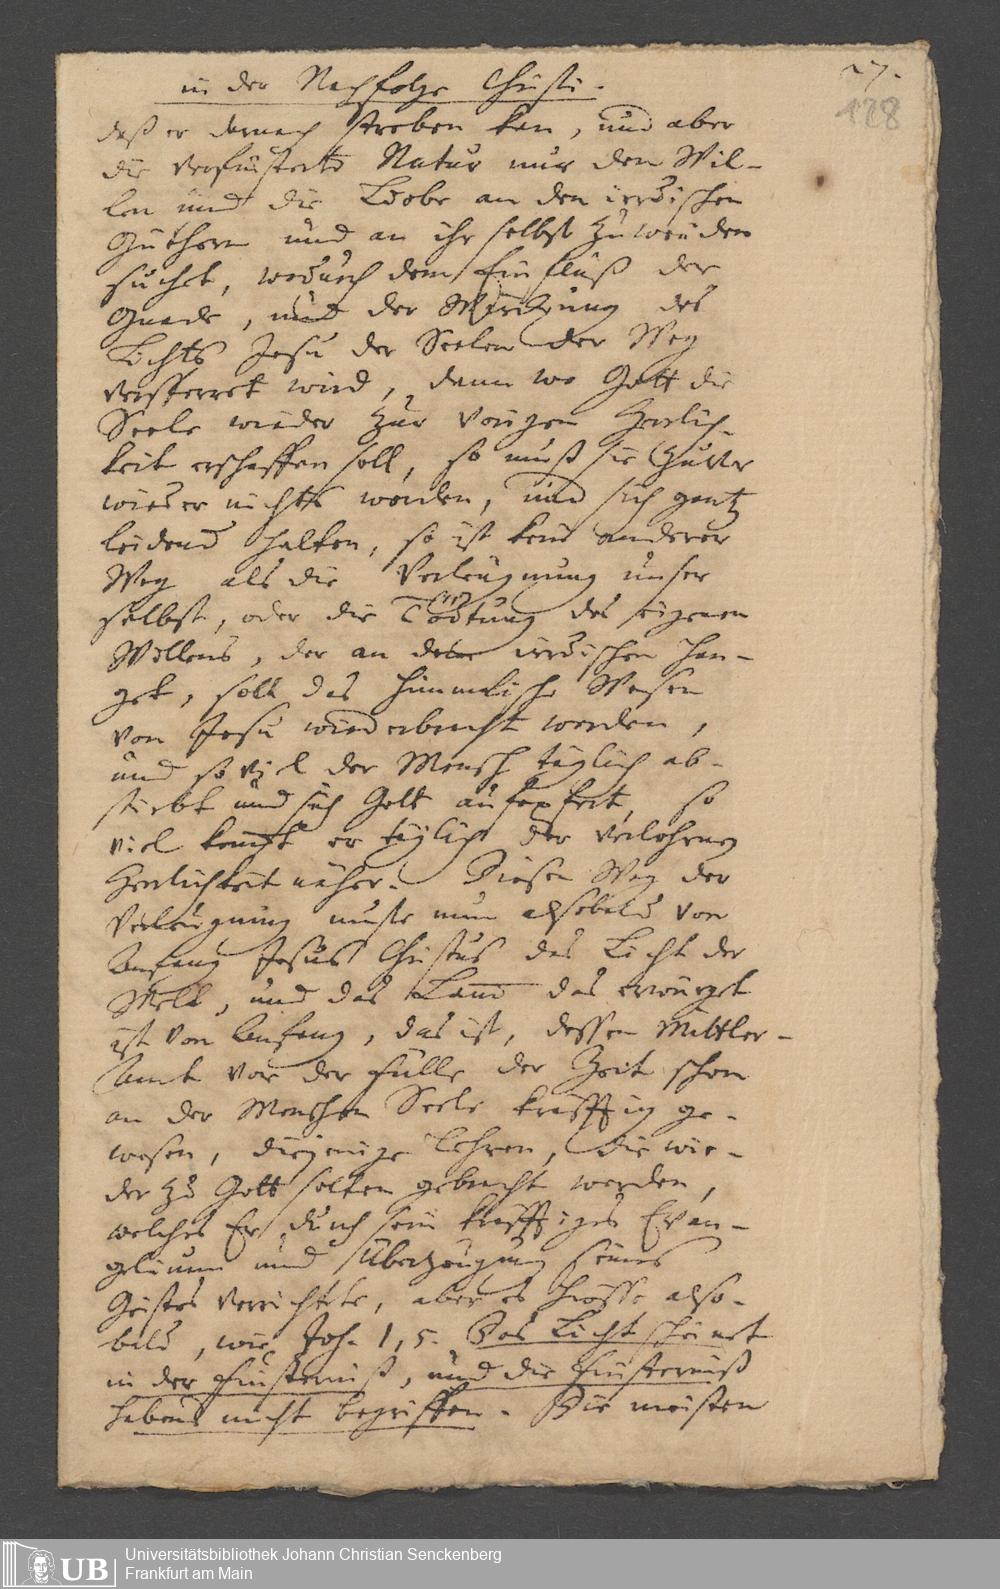 in der Nachfolge Christi.
27.
128
daß er darnach streben kan, und aber
die verfinsterte Natur nur den Wil-
len und die Liebe an den irrdischen
Güthern und an ihr selbst zuwenden
suchet, wodurch dem Einfluß der
Gnade, und der Würckung des
Lichts Jesu der Seelen der Weg
versperret wird, dann wo Gott die
Seele wieder zur vorigen Herrlich-
keit erschaffen soll, so muß sie zuvor
wieder nichts werden, und sich gantz
leidend halten, so ist kein anderer
Weg als die Verleugnung unser
selbst, oder die Tödtung des eigenen
Willens, der an dem irrdischen han-
get, soll das himmlische Wesen
von Jesu wiederbracht werden,
und so viel der Mensch täglich ab-
stirbt und sich Gott aufopfert, so
viel kommt er täglich der verlohrnen
Herrlichkeit näher. Diesen Weg der
Verleugnung muste nun alsobald von
Anfang Jesus Christus das Licht der
Welt, und das Lamm das erwürget
ist von Anfang, das ist, dessen Mittler-
Amt vor der Fülle der Zeit schon
an der Menschen Seele kräfftig ge-
wesen, diejenige lehren, die wie-
der zu Gott solten gebracht werden,
welches Er durch sein kräfftiges Evan-
gelium und Überzeugung seines
Geistes verrichtete, aber es hiesse also-
bald, wie Joh. 1, 5. Das Licht scheinet
in der Finsterniß, und die Finsterniß
habens nicht begriffen. Die meisten
UB
Universitätsbibliothek Johann Christian Senckenberg
Frankfurt am Main